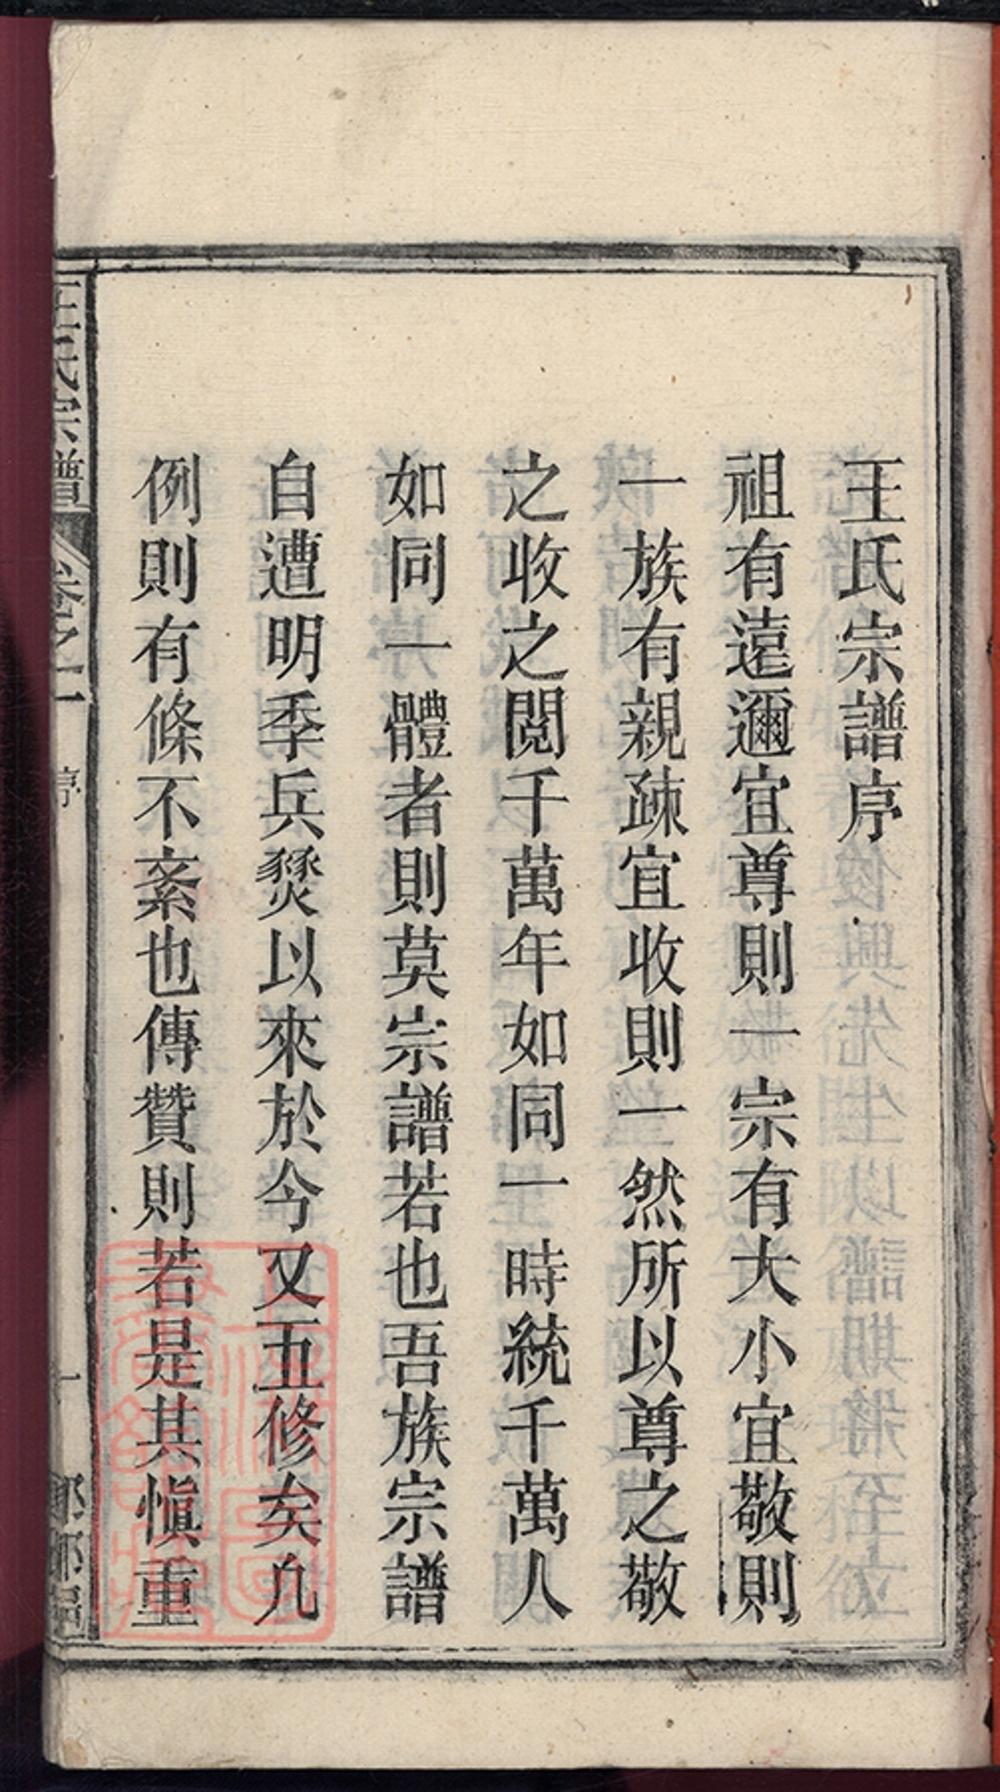 王氏宗譜序
祖有遠邇宜尊則一宗有大小宜敬則
一族有親疎宜收則一然所以尊之敬
之收之閱千萬年如同一時統千萬人
如同一體者則莫宗譜若也吾族宗譜
自遭明季兵燹以來於今又五修矣凡
例則有條不紊也傳贊則若是其慎重
王氏宗譜
卷之一
序
一